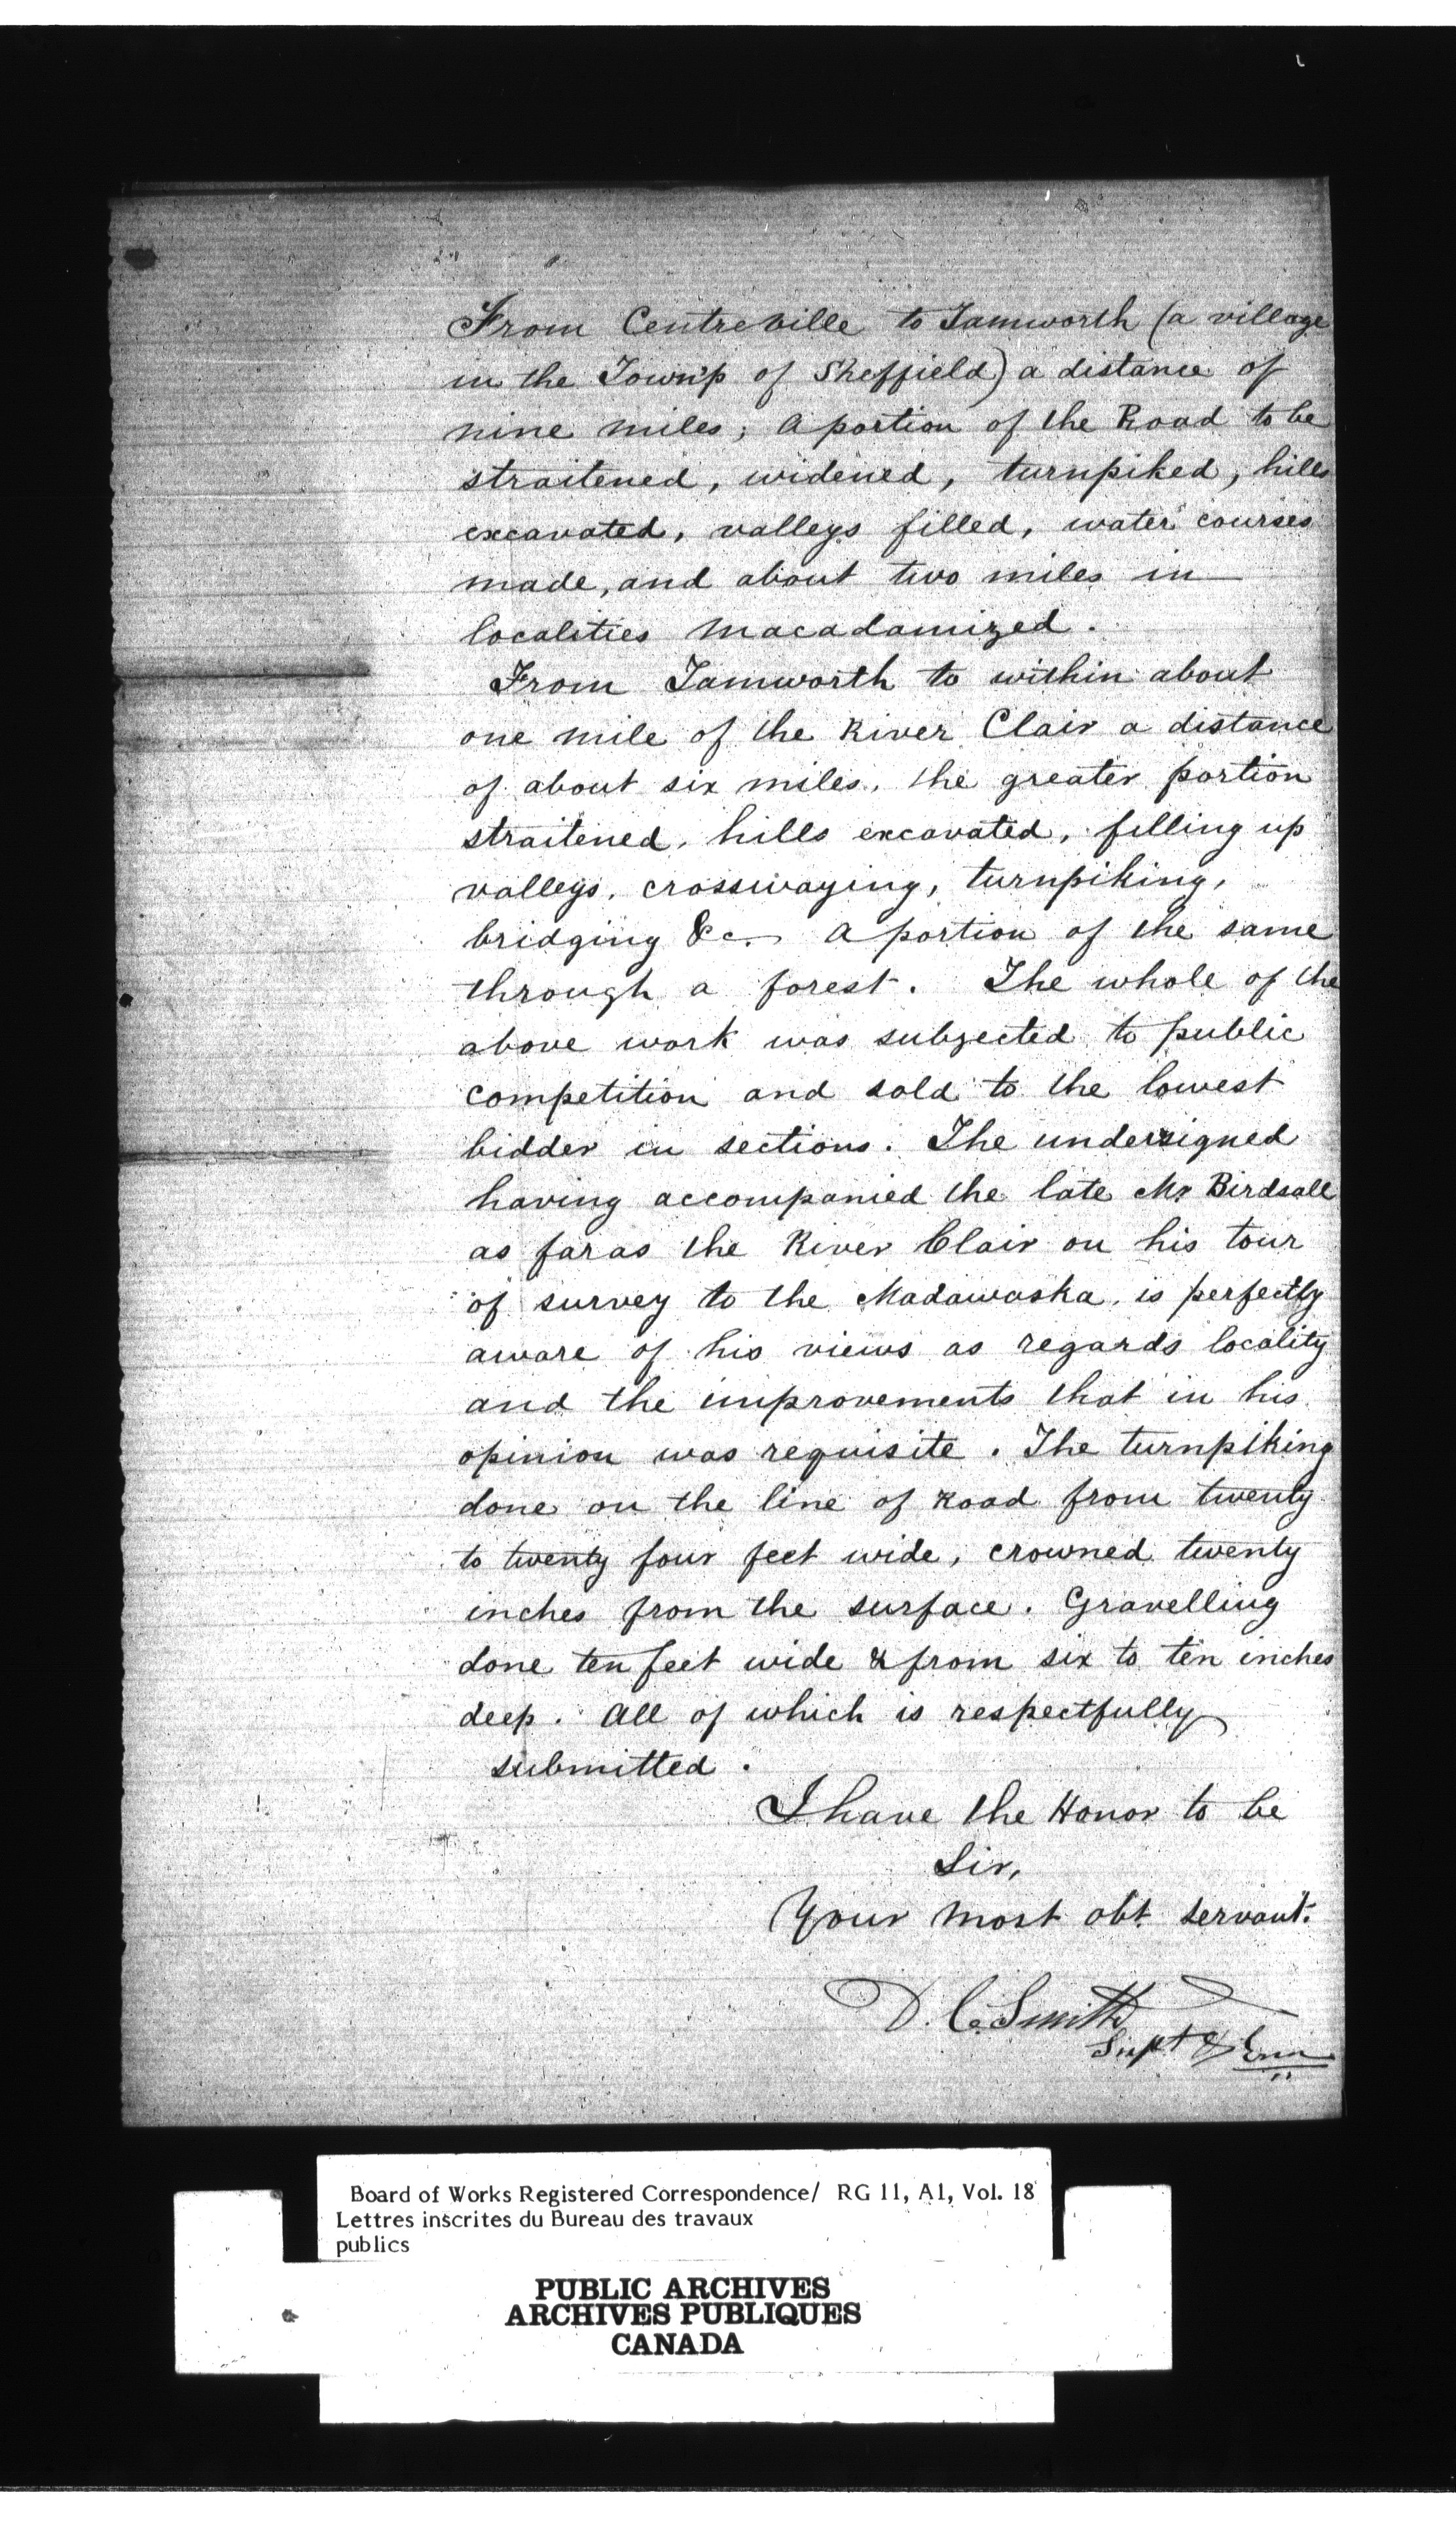 From Centreville to Tamworth (a village
in the Town'p of Sheffield) a distance of
nine miles; a portion of the Road to be
straitened, widened, turnpiked, hills
excavated, valleys filled, water courses
made, and about two miles in
localities macadamized.
From Tamworth to within about
one mile of the River Clair a distance
of about six miles, the greater portion
straitened, hills excavated, filling up
valleys, crosswaying, turnpiking,
bridging &c. a portion of the same
through a forest. The whole of the
above work was subjected to public
competition and sold to the lowest
bidder in sections. The undersigned
having accompanied the late Mr Birdsall
as far as the River Clair on his tour
of survey to the Madawaska, is perfectly
aware of his views as regards locality
and the improvements that in his
opinion was requisite. The turnpiking
done on the line of Road from twenty
to twenty four feet wide, crowned twenty
inches from the surface. Gravelling
done ten feet wide & from six to ten inches
deep. All of which is respectfully
submitted.
I have the Honor to be
Sir,
Your most obt servant.
D. C. Smith
Supt &
Board of Works Registered Correspondence/ RG 11, A1, Vol. 18
Lettres inscrites du Bureau des travaux
publics
PUBLIC ARCHIVES
ARCHIVES PUBLIQUES
CANADA